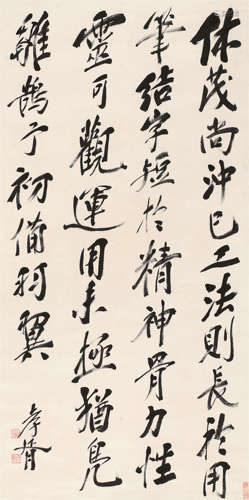 休茂尚沖已工法則長於用
筆結字短於精神骨力性
靈可觀運用未極猶鳧
雛鶴子初備羽翼
孝胥